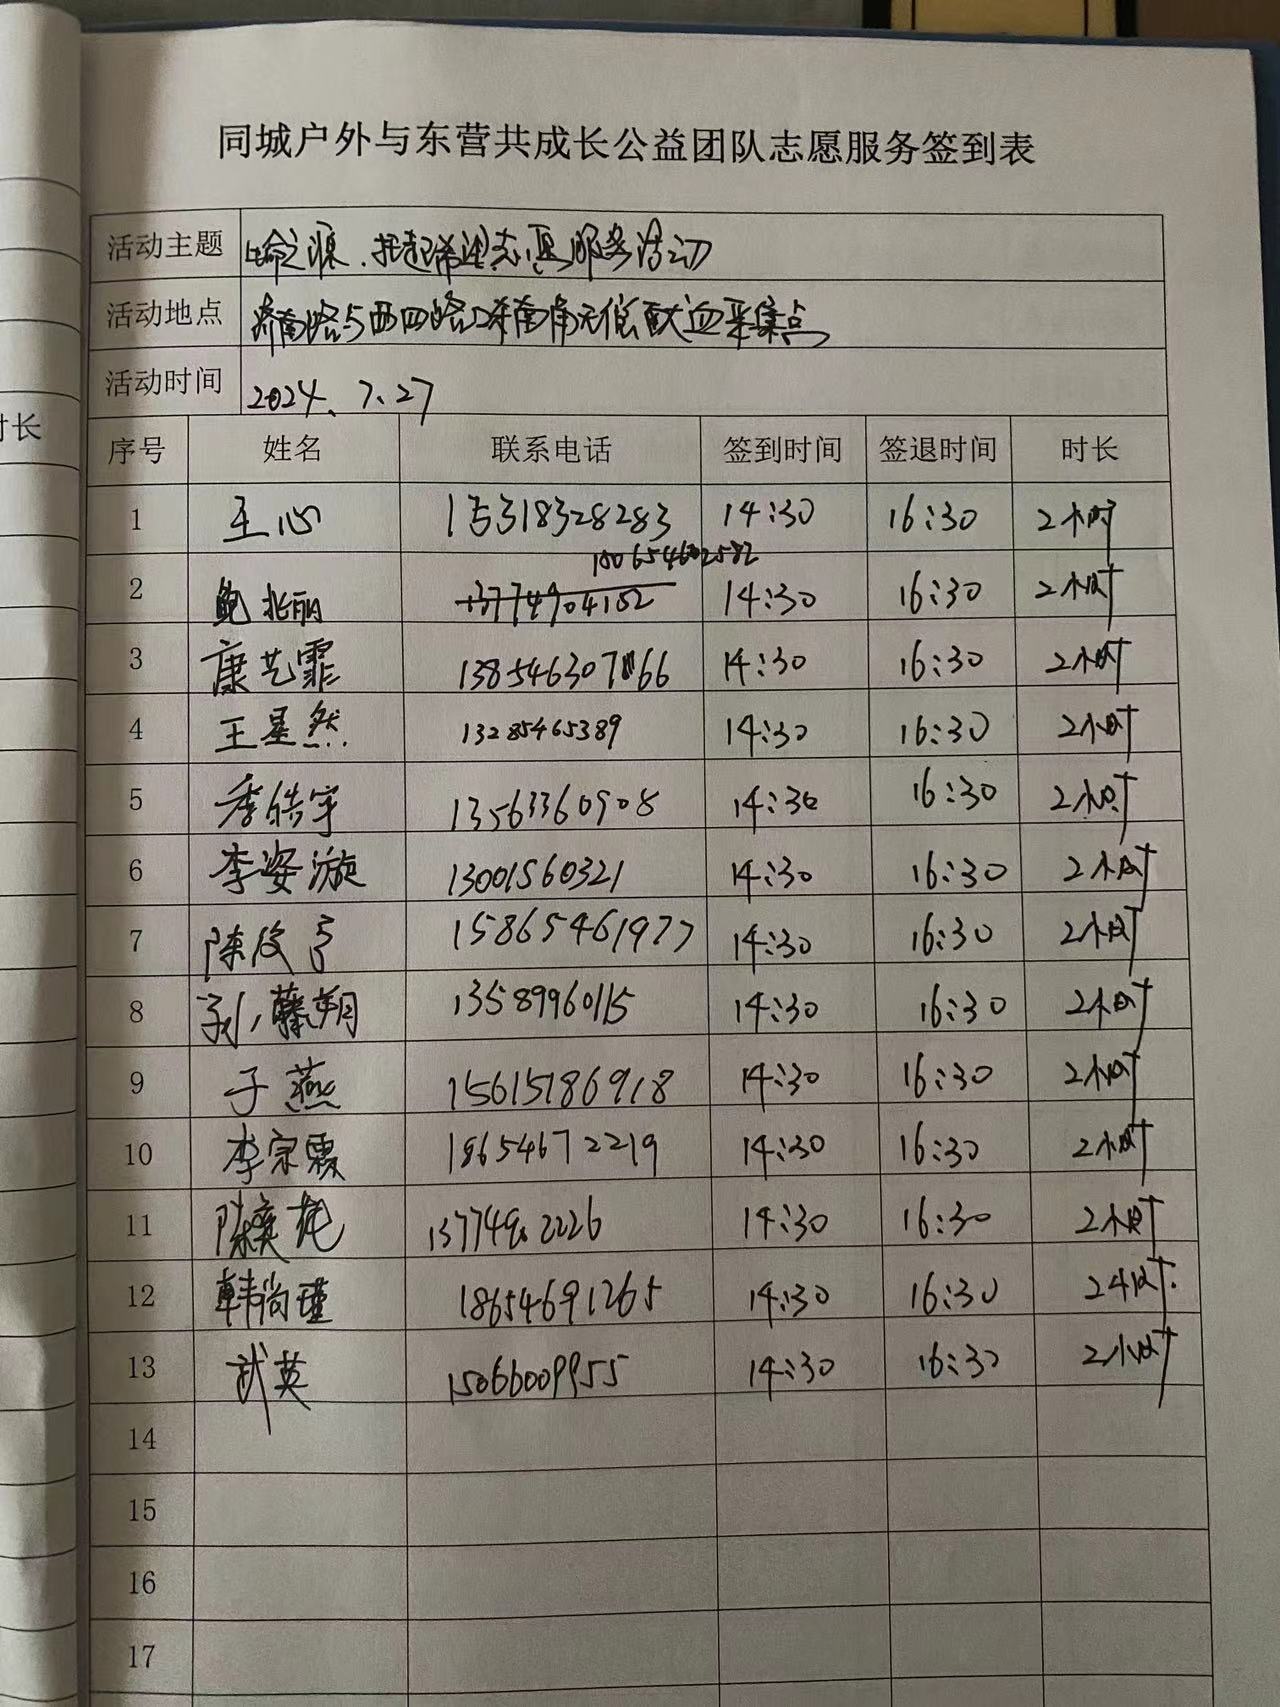 同城户外与东营共成长公益团队志愿服务签到表
活动主题 生命之源.托起希望志愿服务活动
活动地点 济南路与西四路东南角无偿献血采集点
活动时间 2024.7.27
时长
序号 姓名 联系电话 签到时间 签退时间 时长
1 王心 15318328283 14:30 16:30 2小时
2 鲍兆丽 13774904182 14:30 16:30 2小时
3 康艺霏 14:30 16:30 2小时
4 王星然 13285465389 14:30 16:30 2小时
5 季皓宇 13563360908 14:30 16:30 2小时
6 李姿漩 13001560321 14:30 16:30 2小时
7 15865461977 14:30 16:30 2小时
8 孙藤朔 13589960115 14:30 16:30 2小时
9 于燕 15615186918 14:30 16:30 2小时
10 李宗霖 18654672219 14:30 16:30 2小时
11 14:30 16:30 2小时
12 韩尚瑾 18654691265 14:30 16:30 2小时
13 武英 15066009955 14:30 16:30 2小时
14
15
16
17